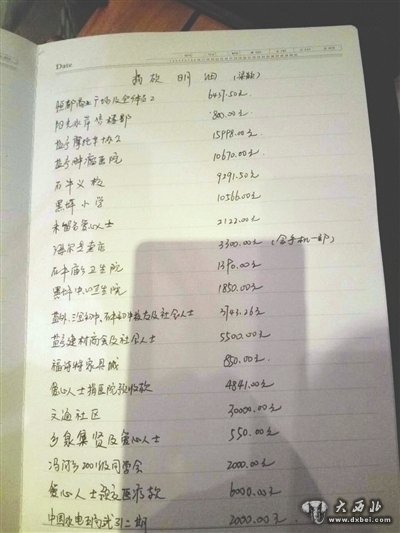 Date
捐款明细（染款）
商业广场及全体员工 6457.50元
阳光水岸售楼部 800.00元
盐亭摩托车协会 15998.00元
盐亭肿瘤医院 10670.00元
石牛义校 9291.50元
黑坪小学 10566.00元
未留名爱心人士 2122.00元
海尔专卖店 3300.00元（含手机一部）
石牛庙乡卫生院 1390.00元
黑坪中心卫生院 1850.00元
及社会人士 3743.26元
盐亭建材商会及社会人士 5500.00元
福诗特家具城 850.00元
爱心人士捐医院预收款 4841.00元
文通社区 30000.00元
乡泉集贤及爱心人士 550.00元
冯河乡2001级同学会 2000.00元
爱心人士医疗款 6000.00元
中国水电二期 2000.00元
大西北
www.dxbei.com